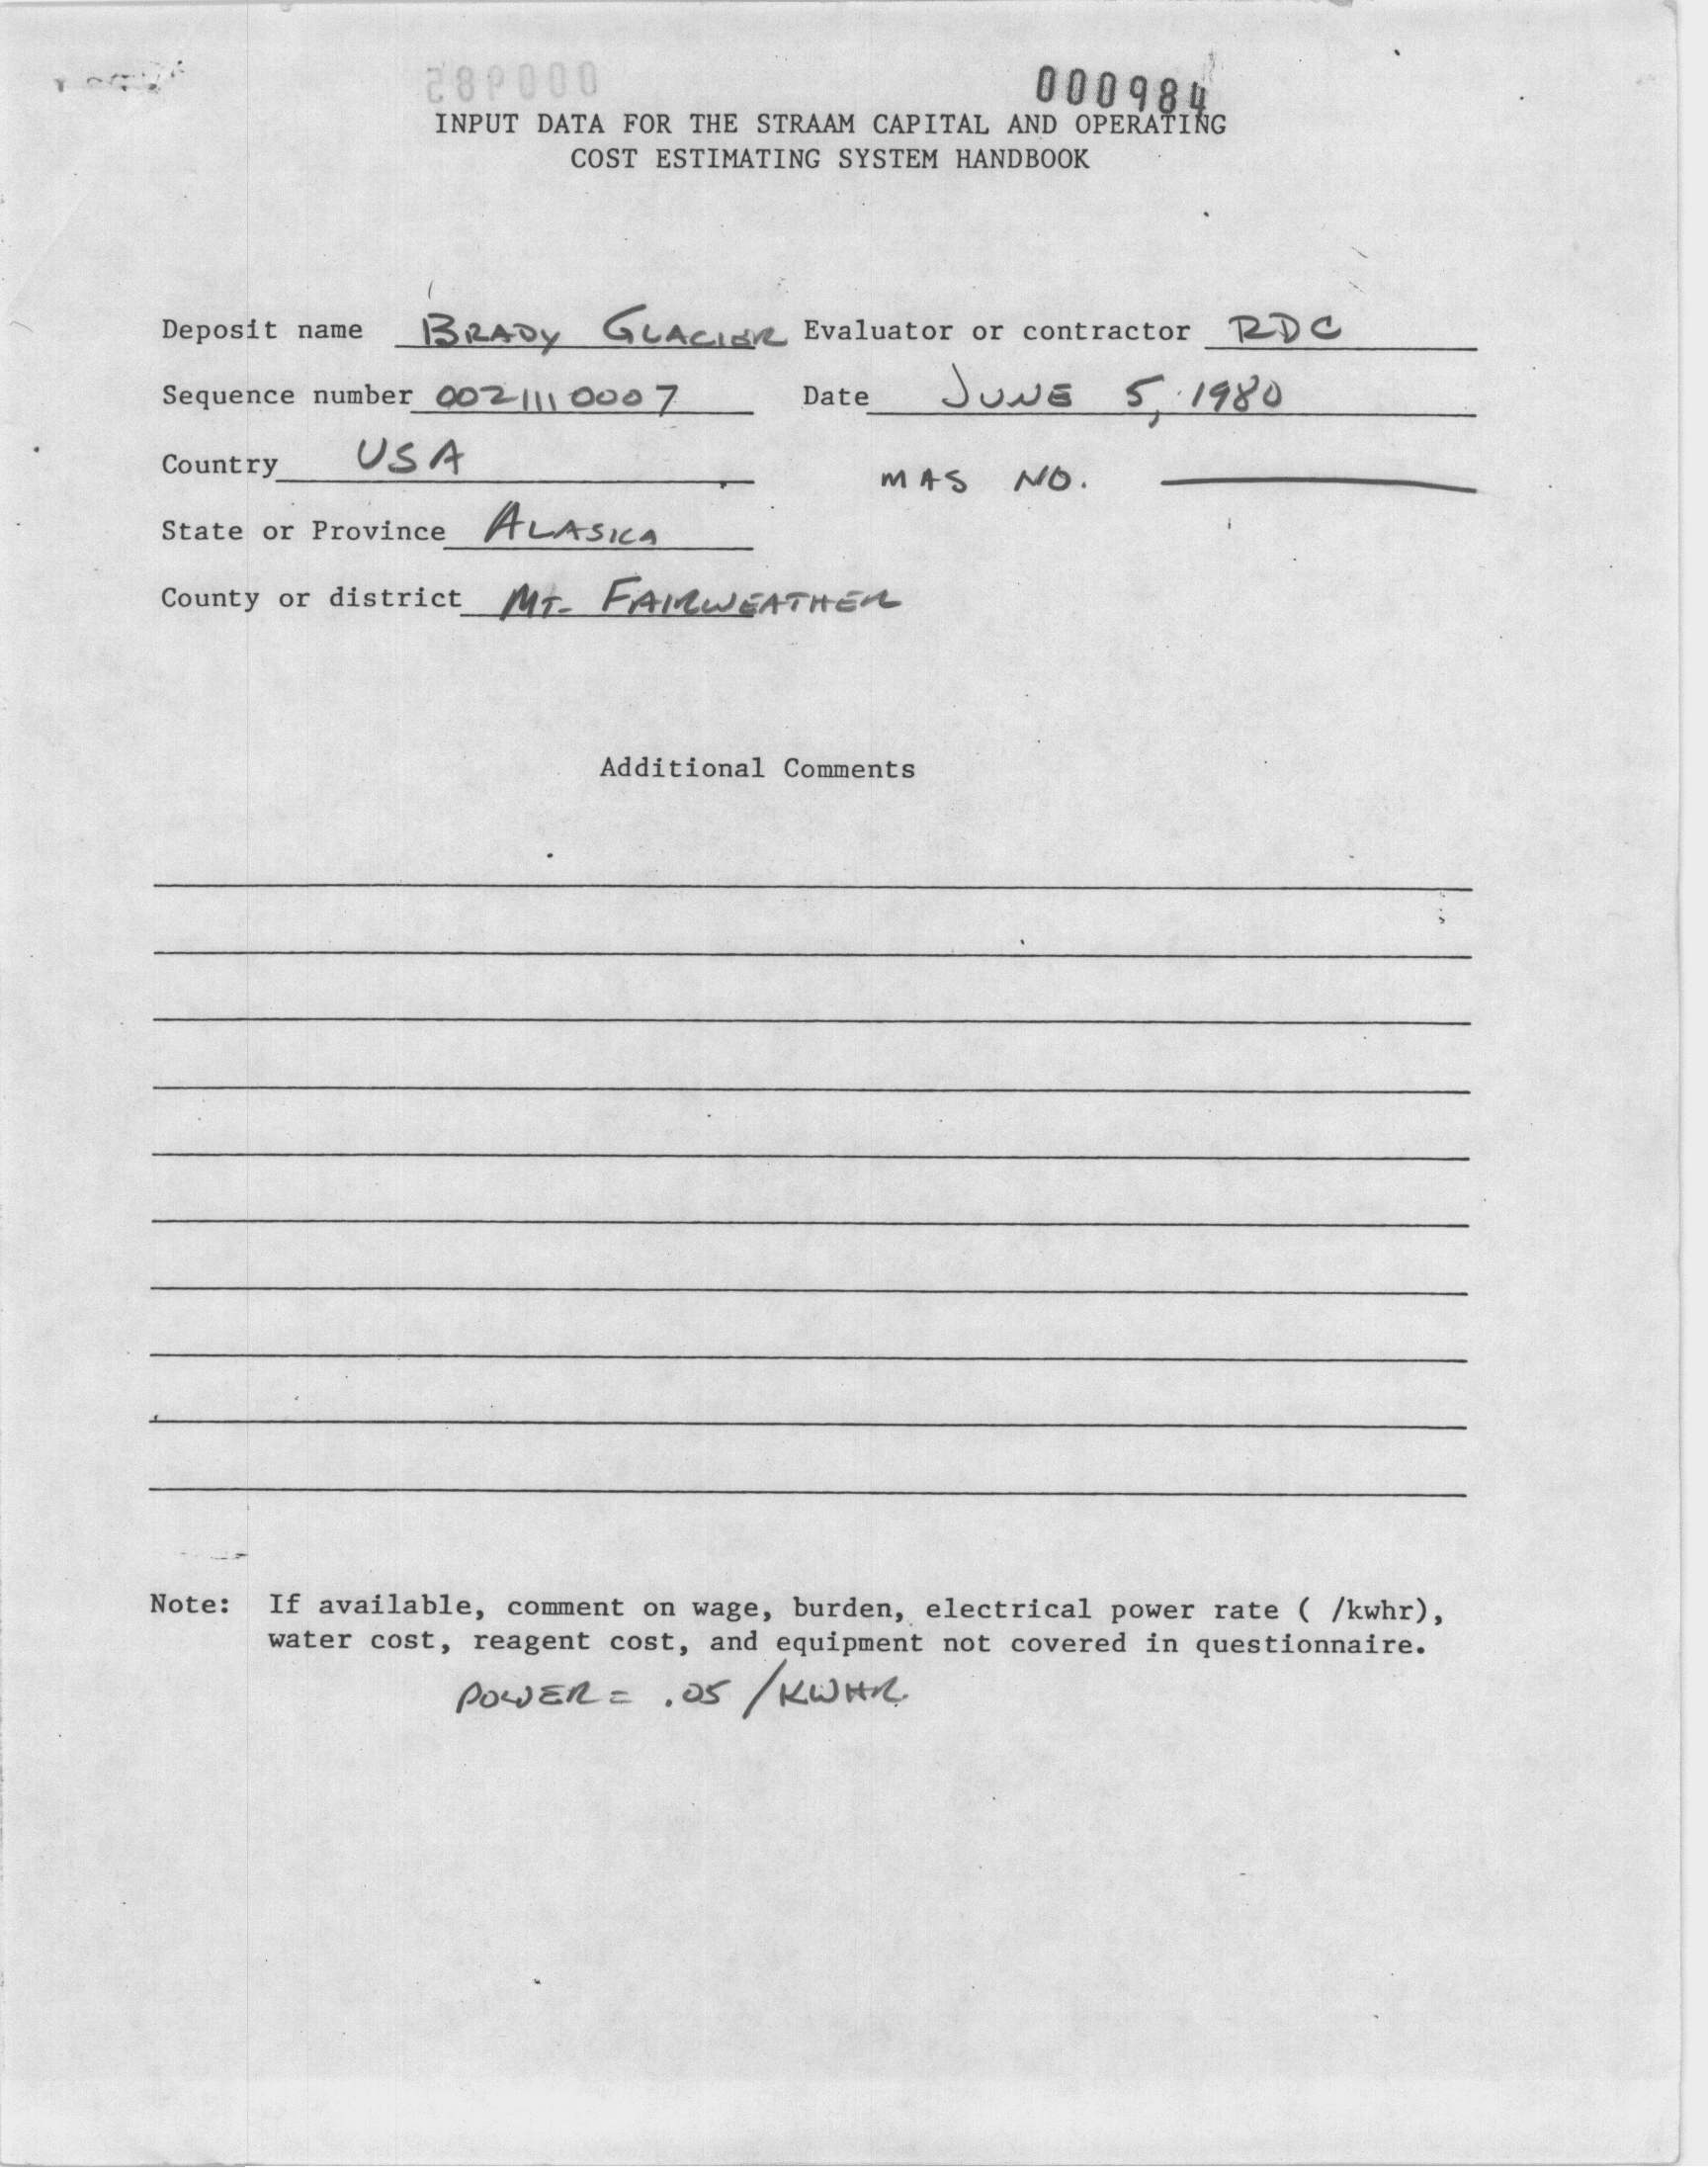 000985
000984
INPUT DATA FOR THE STRAAM CAPITAL AND OPERATING
COST ESTIMATING SYSTEM HANDBOOK
Deposit name BRADY GLACIER Evaluator or contractor RDC
Sequence number 0021110007 Date JUNE 5, 1980
Country USA MAS NO.
State or Province ALASKA
County or district MT. FAIRWEATHER
Additional Comments
Note: If available, comment on wage, burden, electrical power rate ( /kwhr),
water cost, reagent cost, and equipment not covered in questionnaire.
POWER = .05 /KWHR.